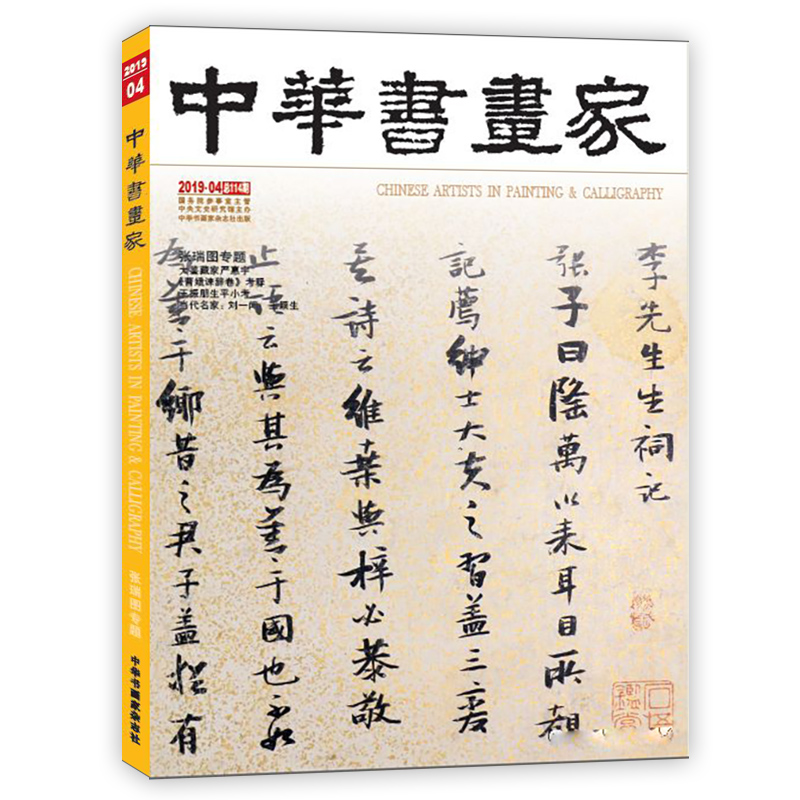 2019
04
中華書畫家
CHINESE ARTISTS IN PAINTING & CALLIGRAPHY
张瑞图专题
中华书画家杂志社
中華書畫家
2019·04 总114期
国务院参事室主管
中央文史研究馆主办
中华书画家杂志社出版
CHINESE ARTISTS IN PAINTING & CALLIGRAPHY
张瑞图专题
大鉴藏家严惠宇
《曹娥诔辞卷》考
王振朋生平小考
当代名家：刘一闻
李先生生祠記
張子曰隆萬以来耳目所覩
記薦紳士大夫之習蓋三變
矣詩云維桑與梓必恭敬
止語云與其為善于國也不如
為善于鄉昔之君子蓋恒有